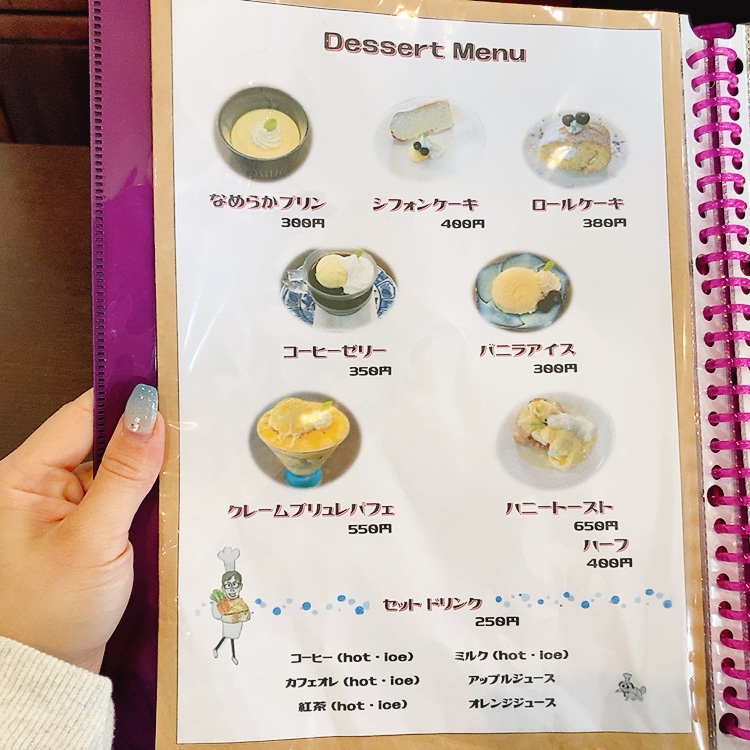 Dessert Menu
なめらかプリン
300円
シフォンケーキ
400円
ロールケーキ
380円
コーヒーゼリー
350円
バニラアイス
300円
クレームブリュレパフェ
550円
ハニートースト
650円
ハーフ
400円
セットドリンク
250円
コーヒー (hot・ice)
ミルク (hot・ice)
カフェオレ (hot・ice)
アップルジュース
紅茶 (hot・ice)
オレンジジュース